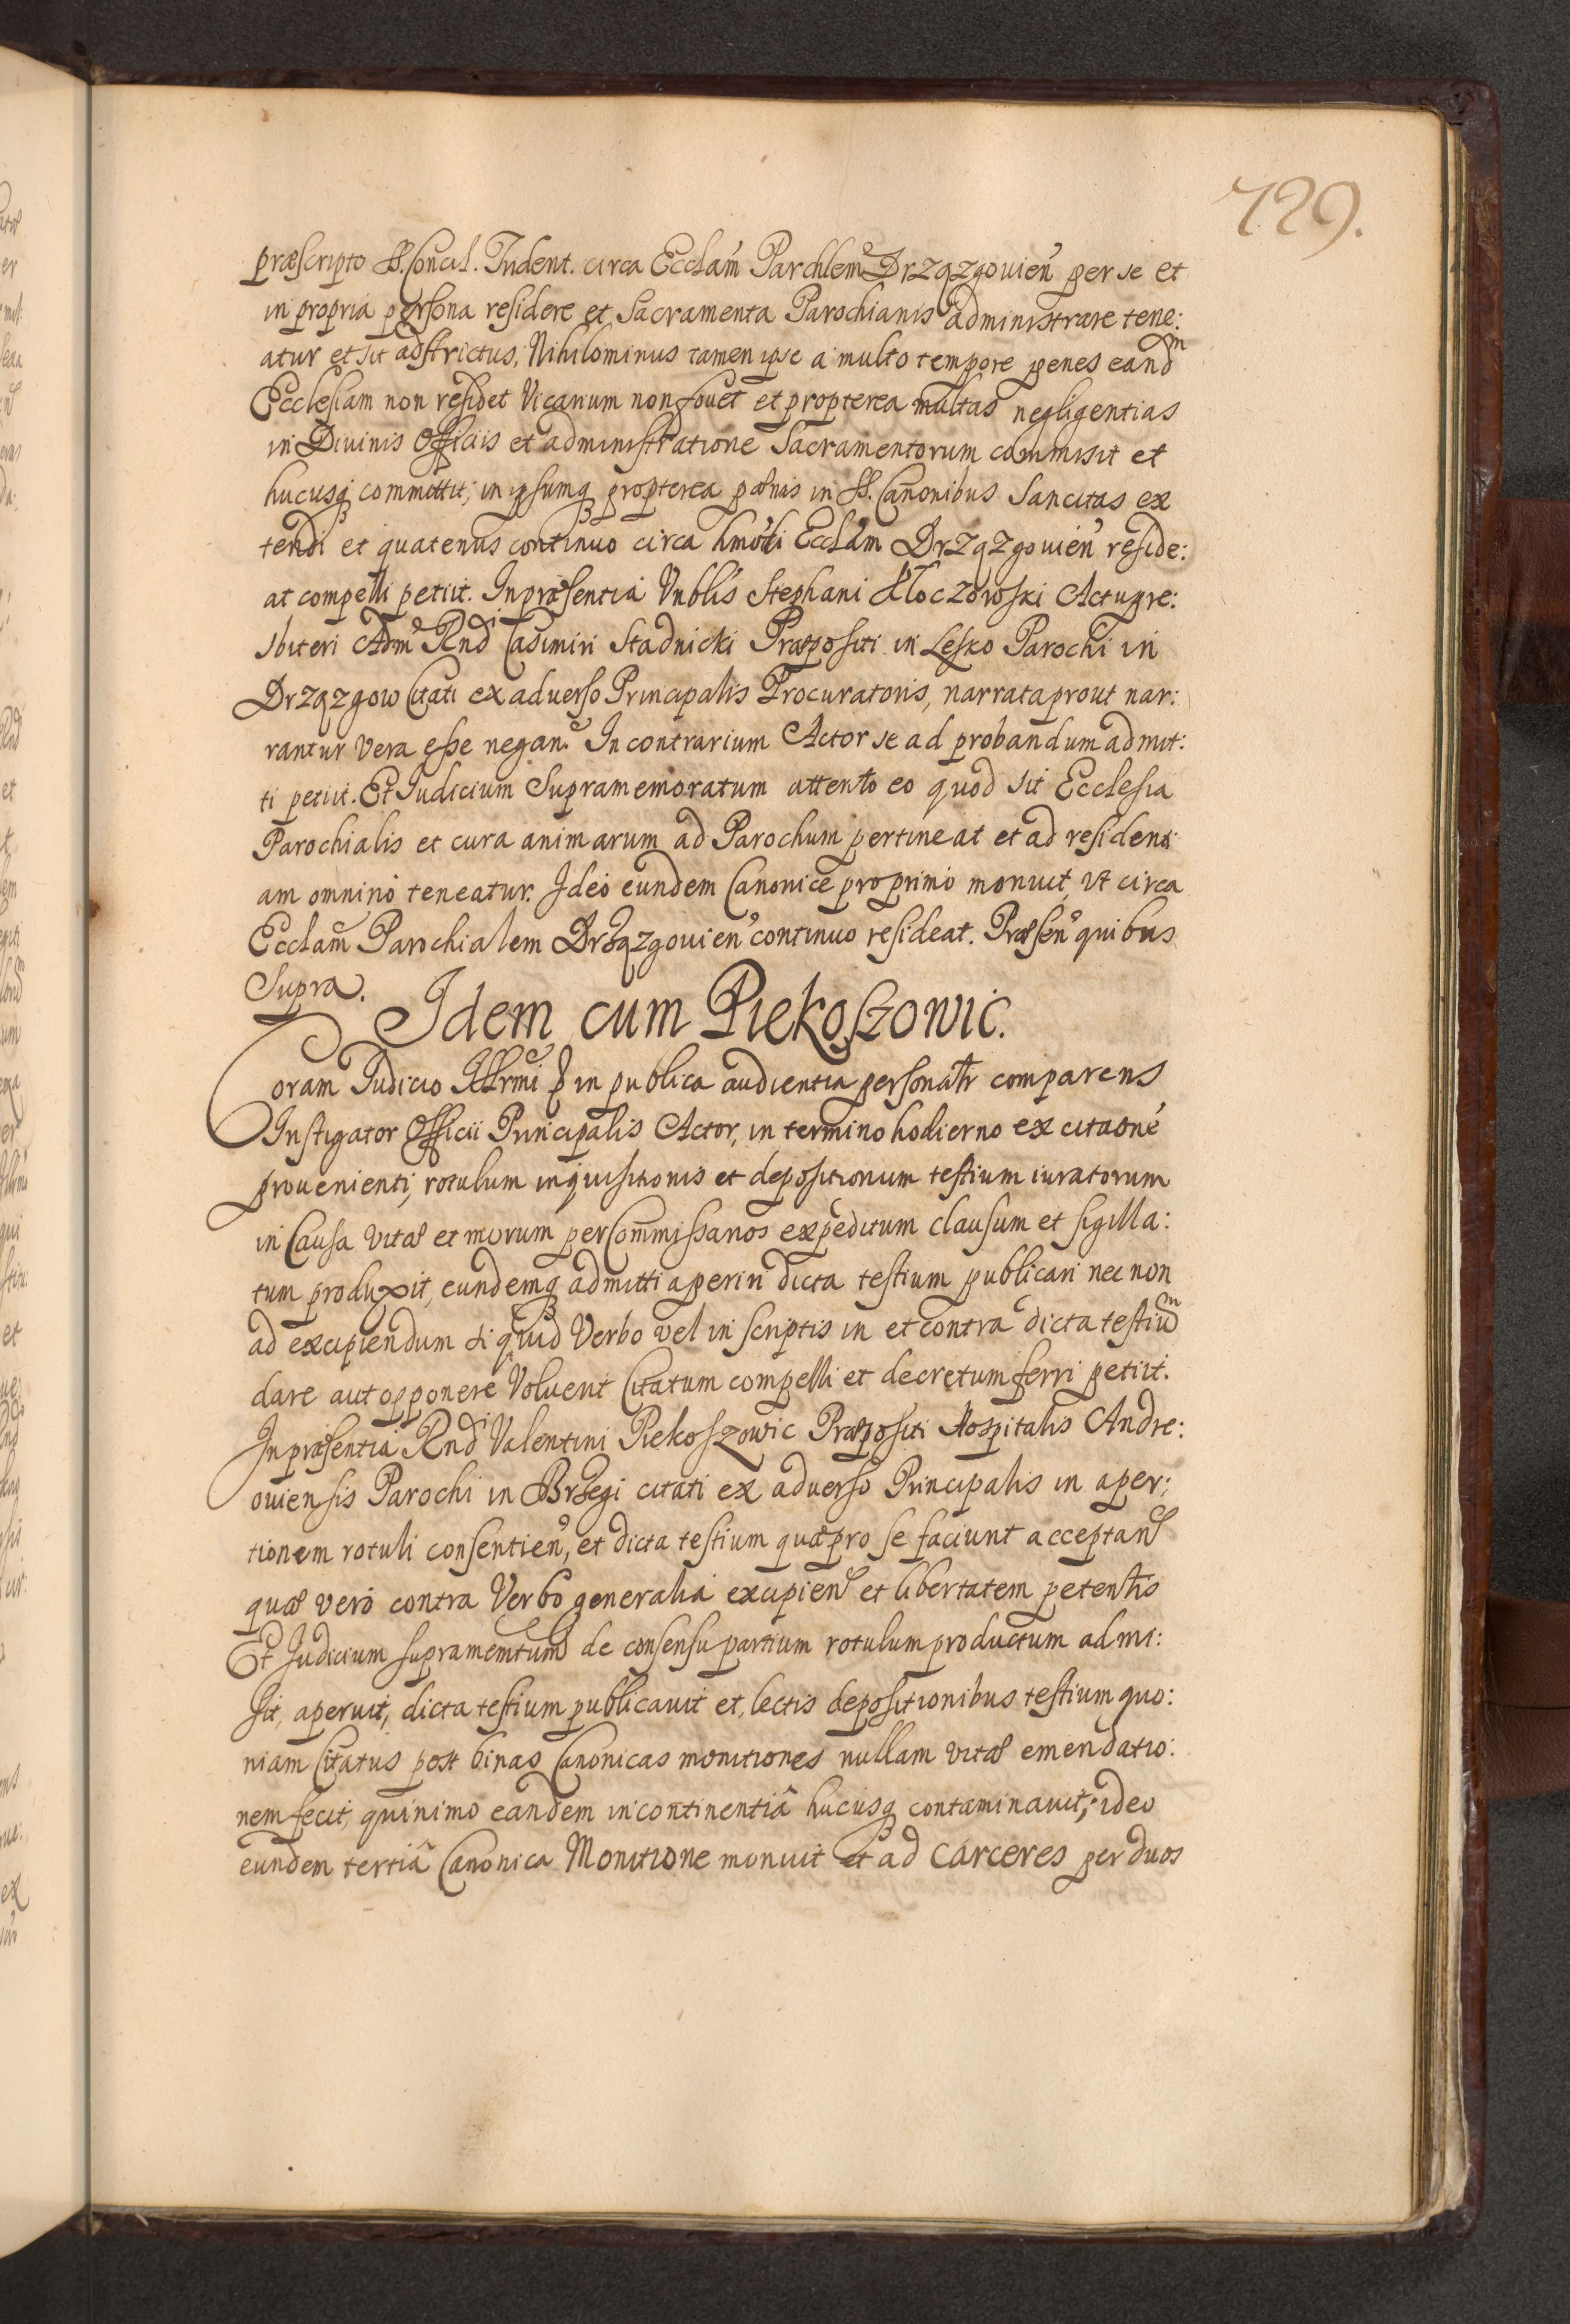 729.
præscripto SS. Concil. Trident. circa Ecclam Parchlem Drzązgovien per se et
in propria persona residere et Sacramenta Parochianis administrare tene:
atur et sit adstrictus, Nihilominus tamen ipse a multo tempore penes eandm
Ecclesiam non residet Vicarium non fovet et propterea multas negligentias
in Divinis Officiis et administratione Sacramentorum commisit et
hucusq committit; in ipsumq propterea pænas in SS. Canonibus Sancitas ex
tendi et quatenus continuo circa hmodi Ecclam Drzązgovien reside:
at compelli petiit. In præsentia Vnblis Stephani Kłoczowski Actu pre:
sbiteri Adm Rndi Casimiri Stadnicki Præpositi in Lesko Parochi in
Drzązgow Citati ex adverso Principalis Procuratoris, narrata prout nar:
rantur vera esse negan. In contrarium Actor se ad probandum admit:
ti petiit. Et Iudicium Supramemoratum attento eo quod sit Ecclesia
Parochialis et cura animarum ad Parochum pertineat et ad residenti
am omnino teneatur. Ideo eundem Canonice pro primo monuit, vt circa
Ecclam Parochialem Drzązgovien continuo resideat. Præsen quibus
Supra.
Idem cum Piekoszowic.
Coram Iudicio Illrmi in publica audientia personalr comparens
Instigator Officii Principalis Actor, in termino hodierno ex citaone
provenienti, rotulum inquisitionis et depositionum testium iuratorum
in Causa vitæ et morum per Commissarios expeditum clausum et sigilla:
tum produxit, eundemq admitti aperiri dicta testium publicari nec non
ad excipiendum si quid Verbo vel in scriptis in et contra dicta testium
dare aut opponere Voluerit Citatum compelli et decretum ferri petiit.
In præsentia Rndi Valentini Piekoszowic Præpositi Hospitalis Andre:
oviensis Parochi in Brzegi citati ex adverso Principalis in aper:
tionem rotuli consentien, et dicta testium quæ pro se faciunt acceptan
quæ vero contra Verbo generalia excipien et libertatem petentis
Et Iudicium supramemtum de consensu partium rotulum productum admi:
sit, aperuit, dicta testium publicavit et, lectis depositionibus testium quo:
niam Citatus post binas Canonicas monitiones nullam vitæ emendatio:
nem fecit, quinimo eandem incontinentiâ hucusq contaminavit, ideo
eundem tertiâ Canonica Monitione monuit et ad carceres per duos